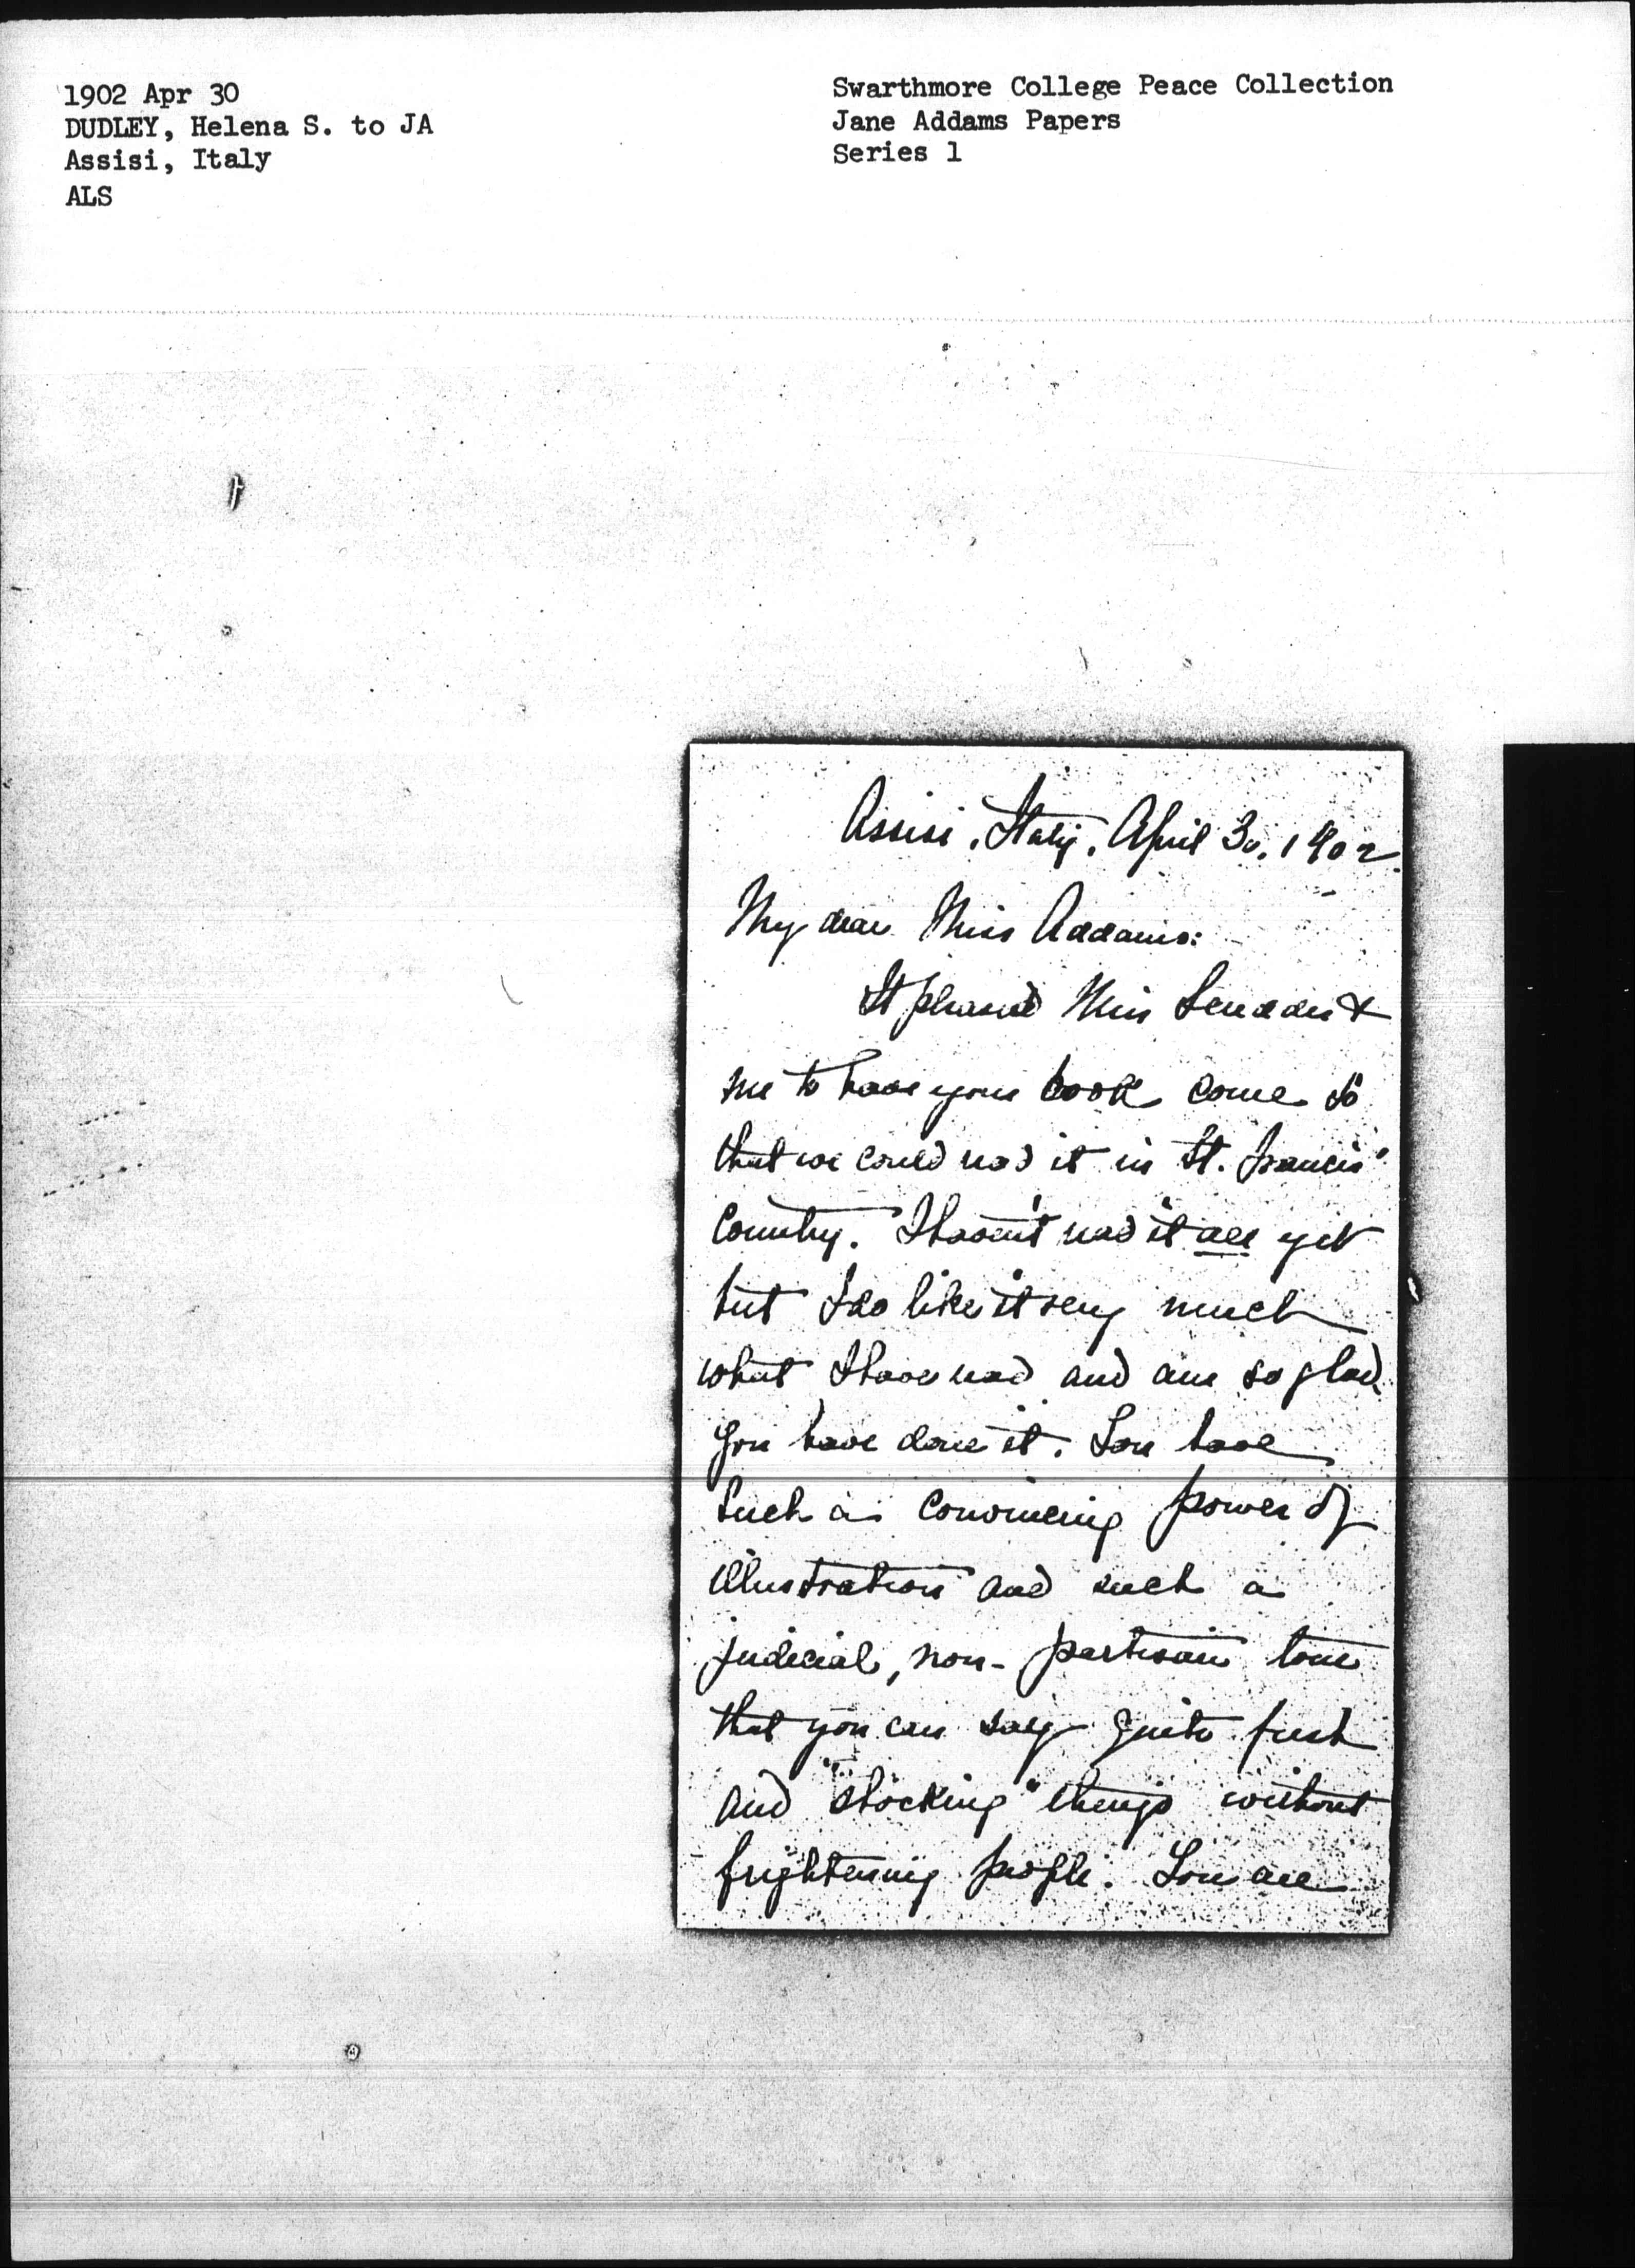 1902 Apr 30
DUDLEY, Helena S. to JA
Assisi, Italy
ALS
Swarthmore College Peace Collection
Jane Addams Papers
Series 1
Assisi, Italy, April 30, 1902
My dear Miss Addams:
It pleased Miss Scudder &
me to have your book come so
that we could read it in St. Francis'
Country. I haven't read it all yet
but I do like it very much
what I have read and am so glad
you have done it. You have
such a convincing power of
illustration and such a
judicial, non-partisan tone
that you can say quite fresh
and "shocking" things without
frightening people. You are